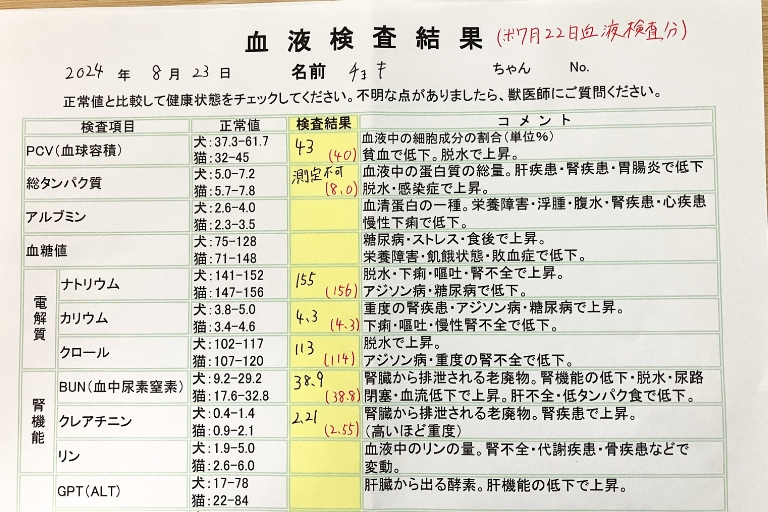 血液検査結果 (※7月22日血液検査分)
2024 年 8 月 23 日 名前 チョキ ちゃん No.
正常値と比較して健康状態をチェックしてください。不明な点がありましたら、獣医師にご質問ください。
検査項目 正常値 検査結果 コメント
PCV(血球容積) 犬:37.3-61.7 43 血液中の細胞成分の割合(単位%)
猫:32-45 (40) 貧血で低下。脱水で上昇。
総タンパク質 犬:5.0-7.2 測定不可 血液中の蛋白質の総量。肝疾患・腎疾患・胃腸炎で低下
猫:5.7-7.8 (8.0) 脱水・感染症で上昇。
アルブミン 犬:2.6-4.0 血清蛋白の一種。栄養障害・浮腫・腹水・腎疾患・心疾患
猫:2.3-3.5 慢性下痢で低下。
血糖値 犬:75-128 糖尿病・ストレス・食後で上昇。
猫:71-148 栄養障害・飢餓状態・敗血症で低下。
電解質
ナトリウム 犬:141-152 155 脱水・下痢・嘔吐・腎不全で上昇。
猫:147-156 (156) アジソン病・糖尿病で低下。
カリウム 犬:3.8-5.0 4.3 重度の腎疾患・アジソン病・糖尿病で上昇。
猫:3.4-4.6 (4.3) 下痢・嘔吐・慢性腎不全で低下。
クロール 犬:102-117 113 脱水で上昇。
猫:107-120 (114) アジソン病・重度の腎不全で低下。
腎機能
BUN(血中尿素窒素) 犬:9.2-29.2 38.9 腎臓から排泄される老廃物。腎機能の低下・脱水・尿路
猫:17.6-32.8 (38.8) 閉塞・血流低下で上昇。肝不全・低タンパク食で低下。
クレアチニン 犬:0.4-1.4 2.21 腎臓から排泄される老廃物。腎疾患で上昇。
猫:0.9-2.1 (2.55) (高いほど重度)
リン 犬:1.9-5.0 血液中のリンの量。腎不全・代謝疾患・骨疾患などで
猫:2.6-6.0 変動。
GPT(ALT) 犬:17-78 肝臓から出る酵素。肝機能の低下で上昇。
猫:22-84